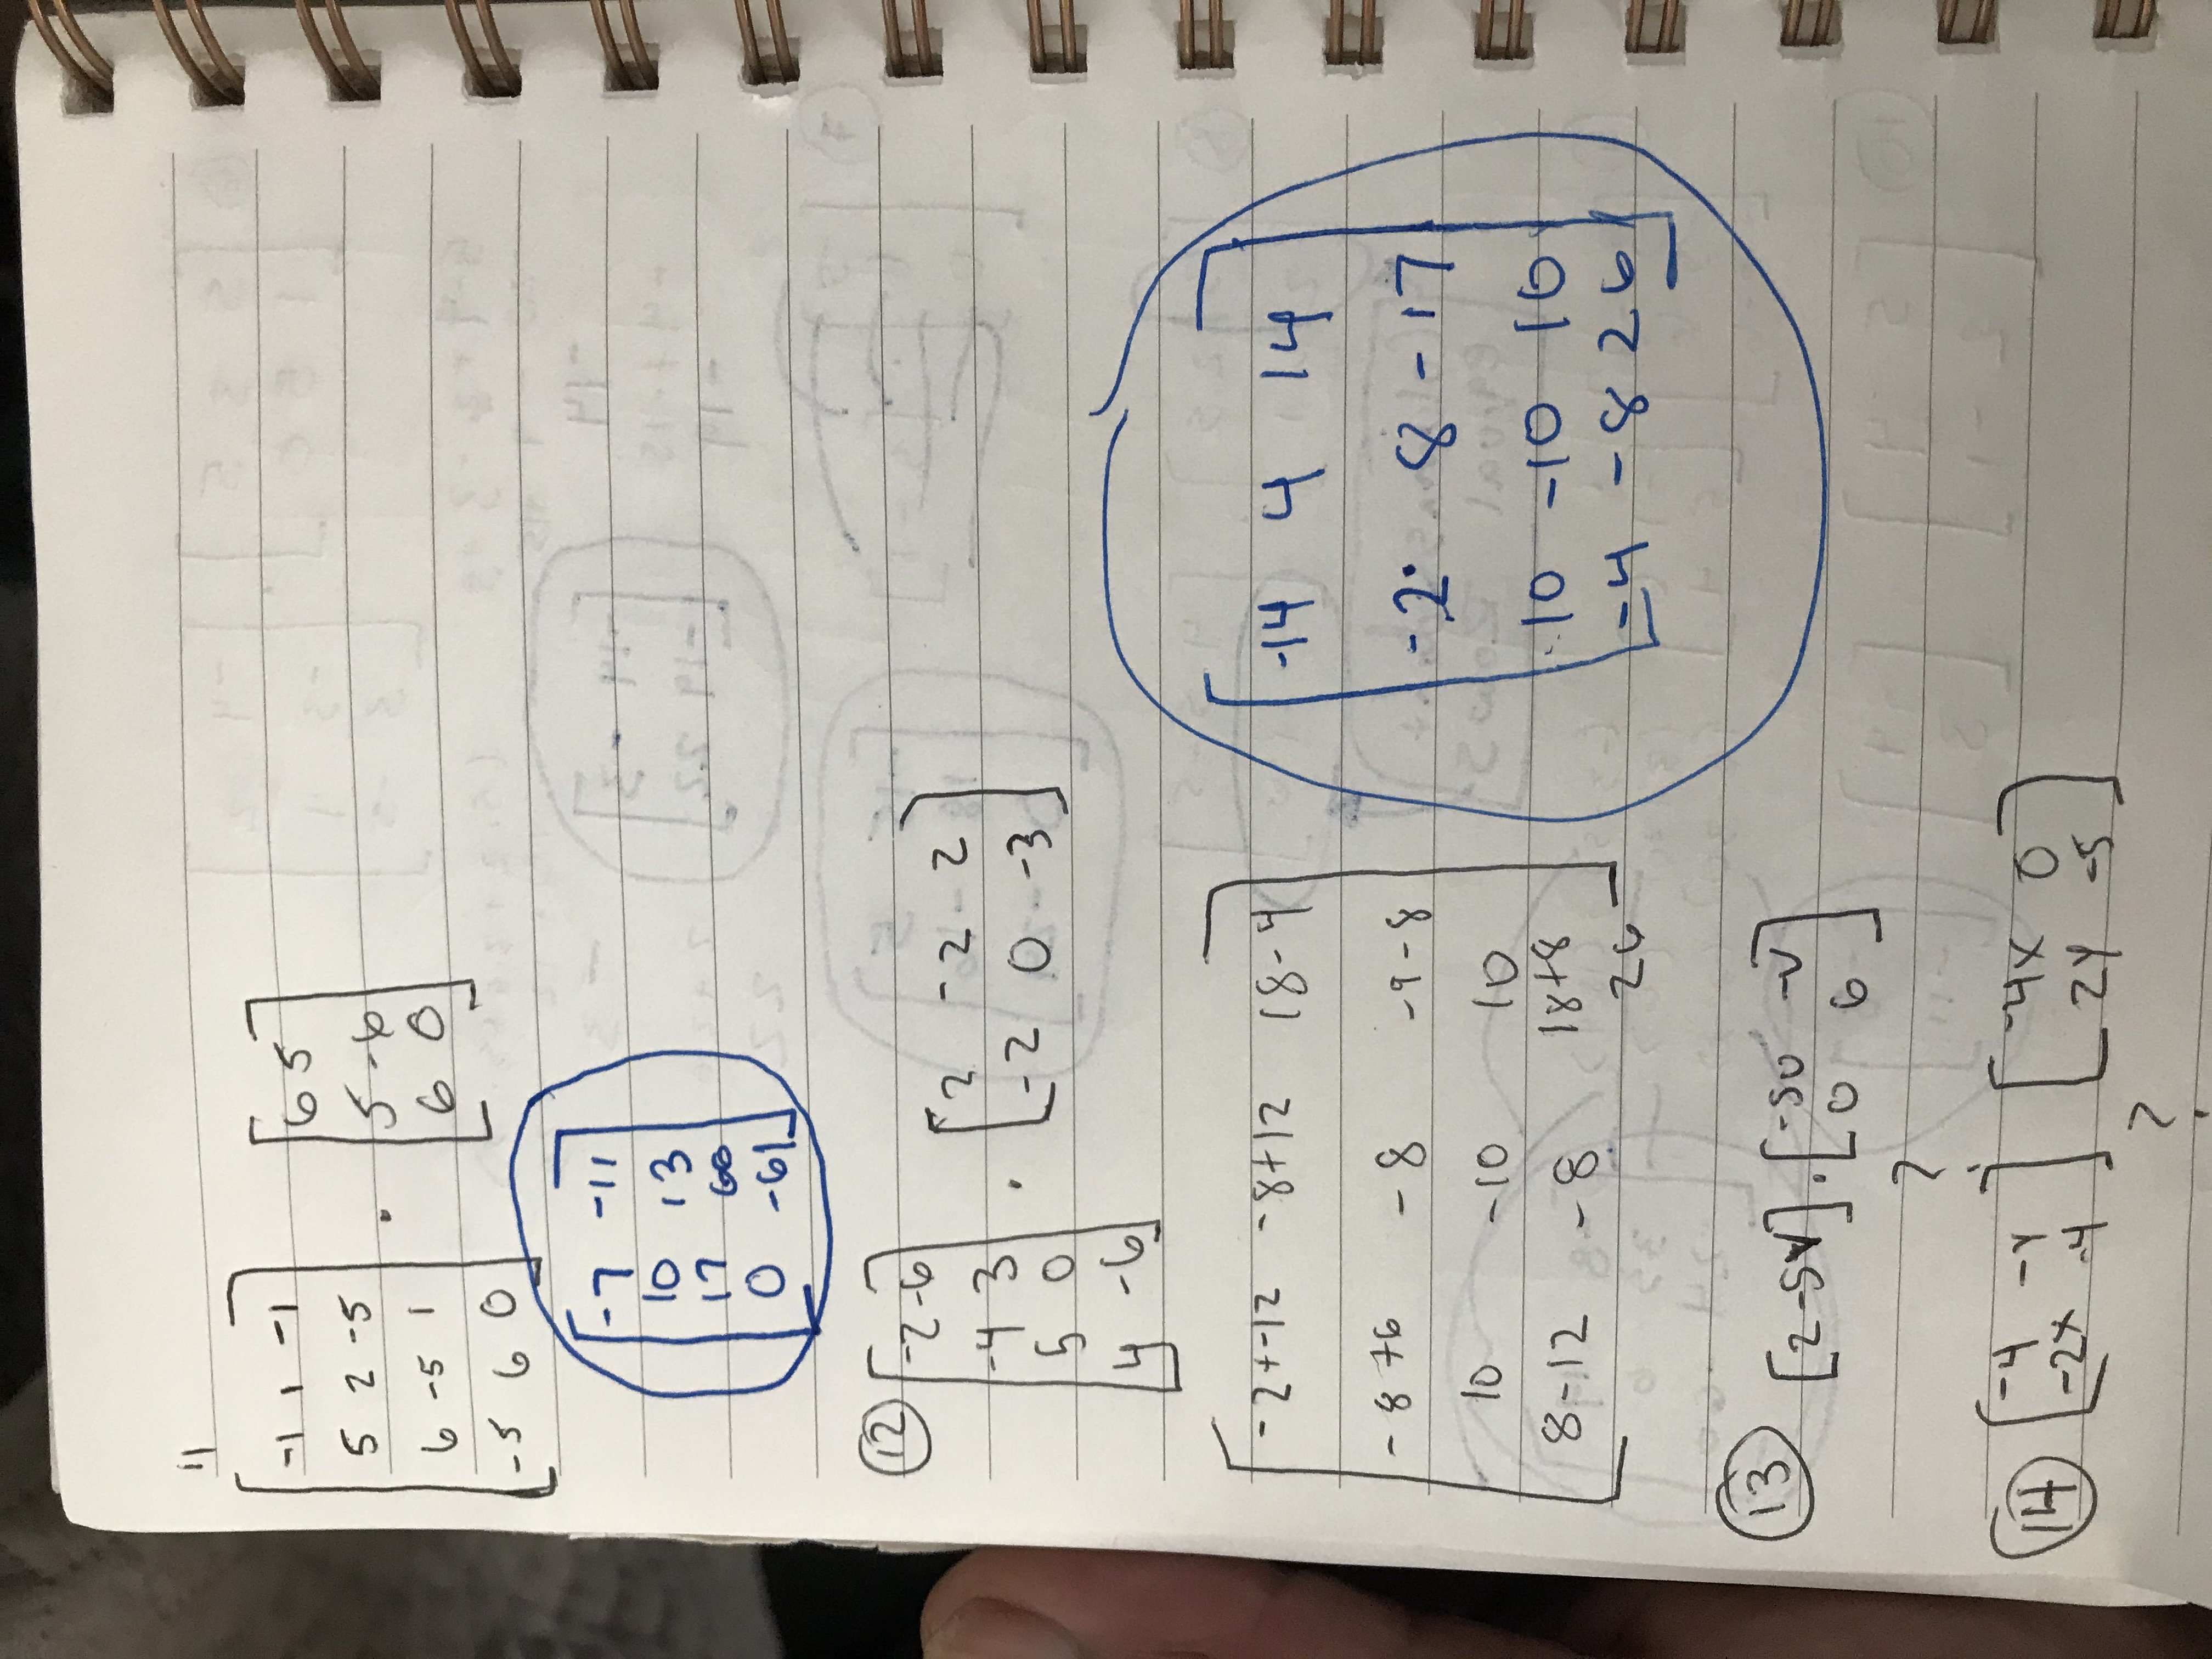 11
-1 1 -1
5 2 -5
6 -5 1
-5 6 0
.
6 5
5 -6
6 0
-7 -11
10 13
17 60
0 -61
12
-2 -6
-4 3
5 0
4 -6
.
2 -2 2
-2 0 -3
-2+-12 -8+12 18-4
-8+6 -8 -9-8
10 -10 10
8-12 -8 18+8
26
-14 4 14
-2 8 -17
10 -10 10
-4 -8 26
13
[2 -5V] .
-5U -V
0 6
?
14
-4 -Y
-2X -4
-4X 0
2Y -5
?